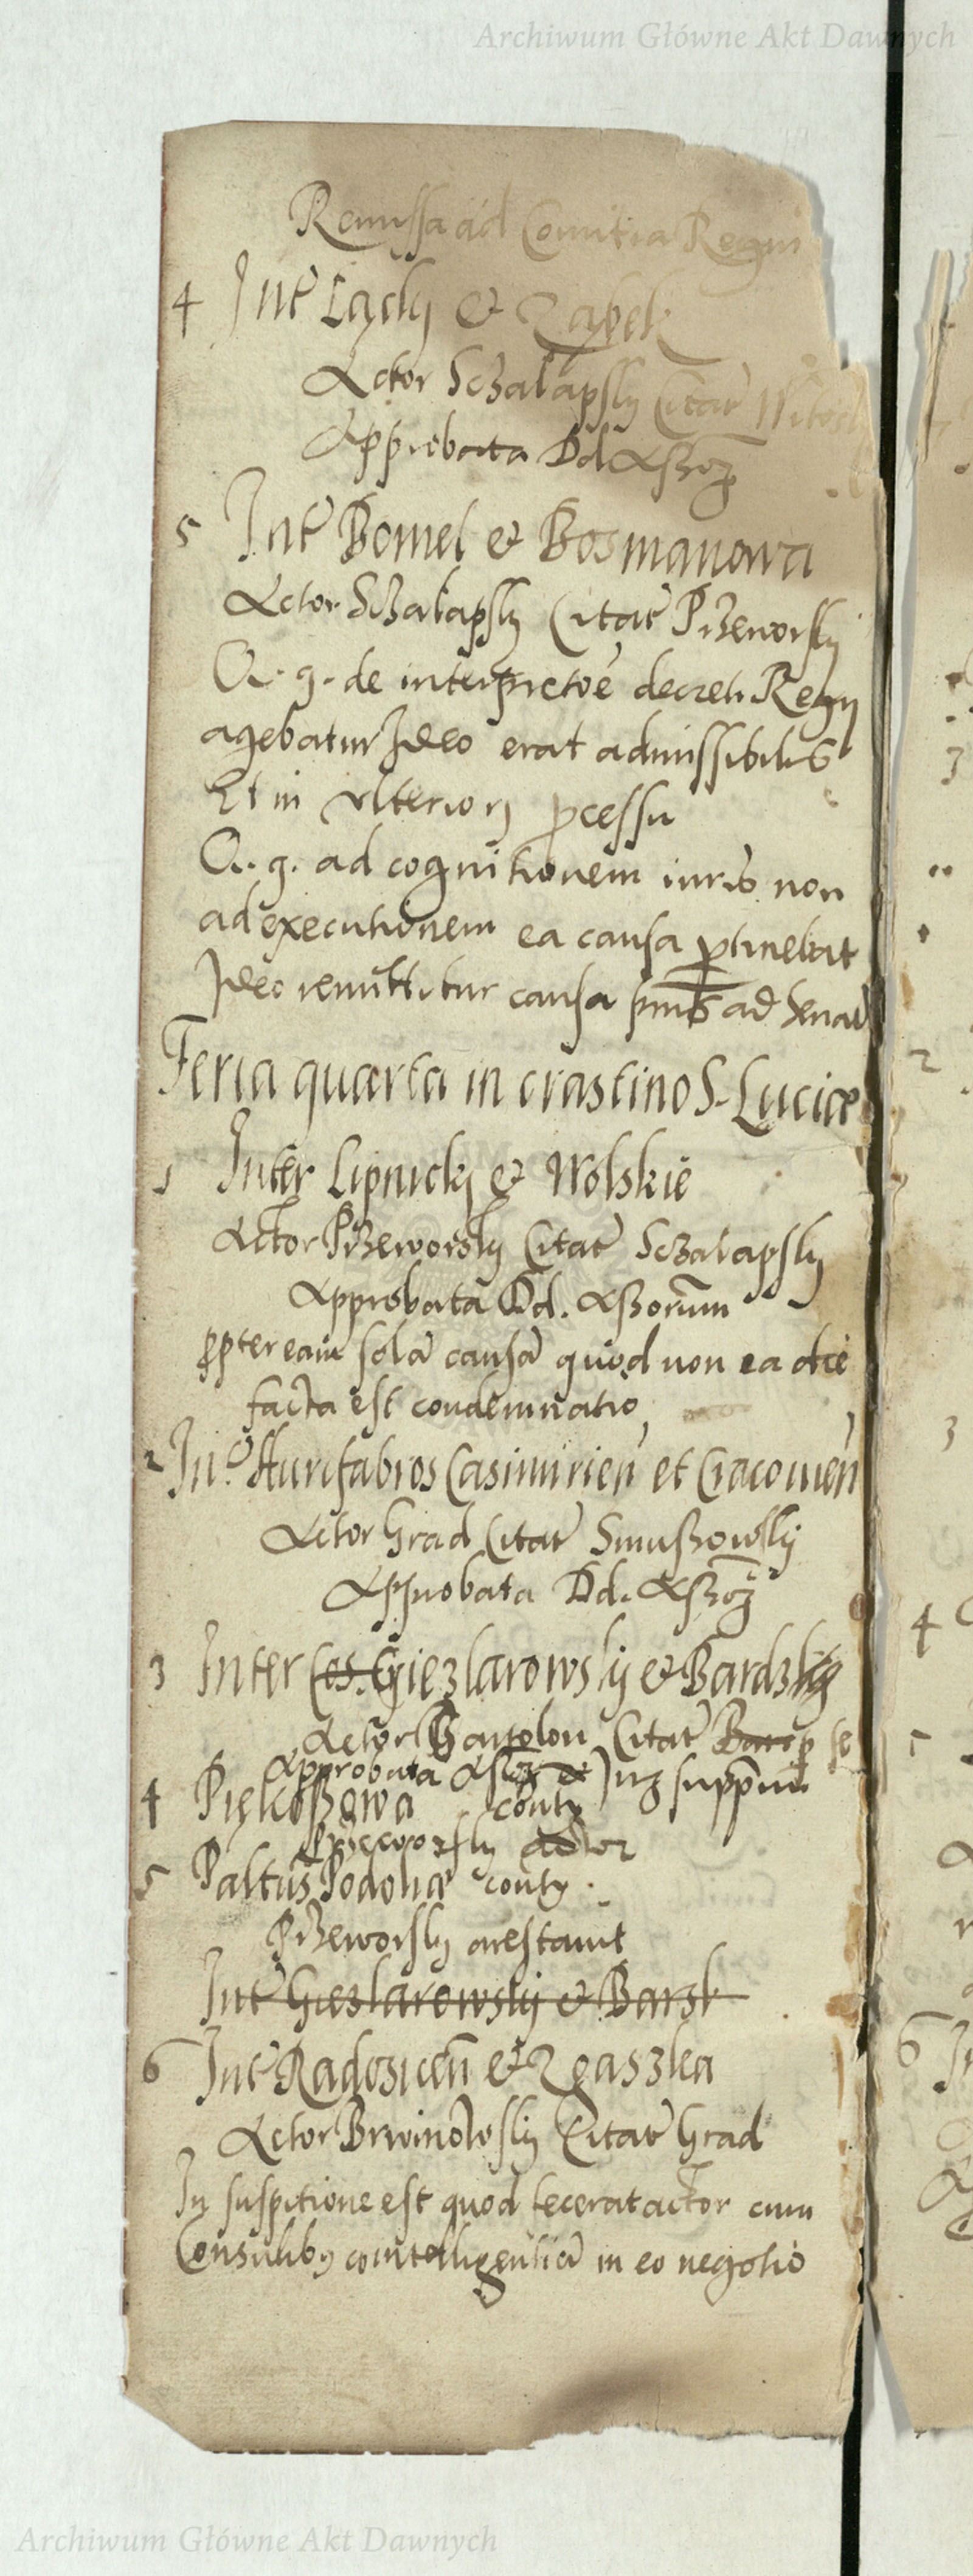 Archiwum Główne Akt Dawnych
Remissa ad Comitia Regni
4 Int Łącky & Ząpek
Actor Sczalapsky Citat Witosl
Approbata Dd Assoꝝ
5 Int Bomel & Bosmanowa
Actor Sczalapsky Citat Przeworsky
Q. g. de interpretoe decreti Regij
agebatur Ideo erat admissibilis
Et in ulteriorj pcessu
Q. g. ad cognitionem iuris non
ad executionem ea causa ptinebat
Ideo remittitur causa ad Senat
Feria quarta in crastino S. Luciæ
1 Inter Lipnicky & Wolskie
Actor Przeworsky Citat Sczalapsky
Approbata Dd. Assorum
ppter eam sola causa quod non ea die
facta est condemnatio
2 Int Aurifabros Casimirien et Cracouien
Actor Grad Citat Smuszowsky
Approbata Dd. Assoꝝ
3 Inter Cos. Giezlarowsky & Bardzky
Actor Bartolon Citat
Approbata Assoꝝ
4 Piękoszowa contꝫ
Przeworsky actor
5 Paltus Podoliæ contꝫ
Przeworsky arestauit
Int Giezlarowsky & Barzk
6 Int Radosicen & Zgaszka
Actor Brwinowsky Citat Grad
In suspitione est quod fecerat actor cum
Consulibꝫ cointelligentia in eo negotio
Archiwum Główne Akt Dawnych